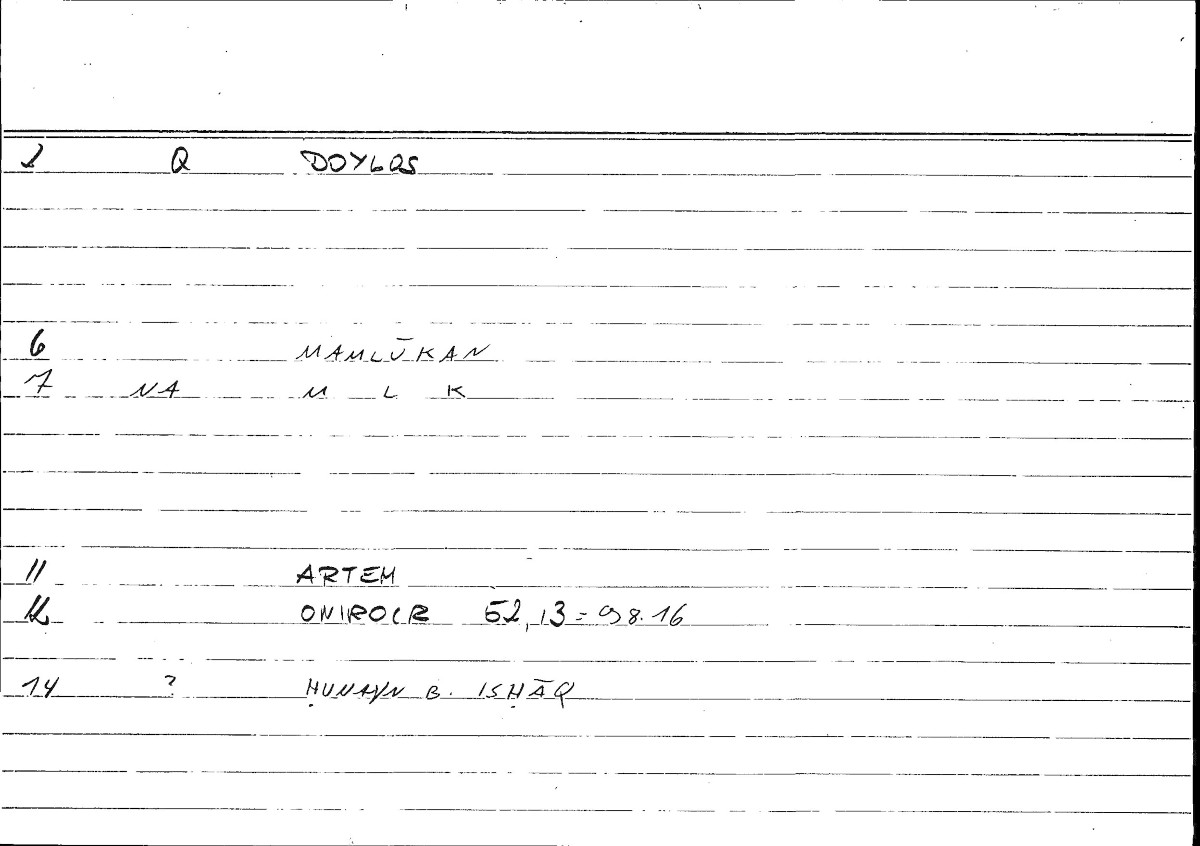 1 Q DOYLOS
6 MAMLŪKAN
7 NA M L K
11 ARTEM
12 ONIROCR 52,13=98.16
14 ? ḤUNAYN B. ISḤĀQ